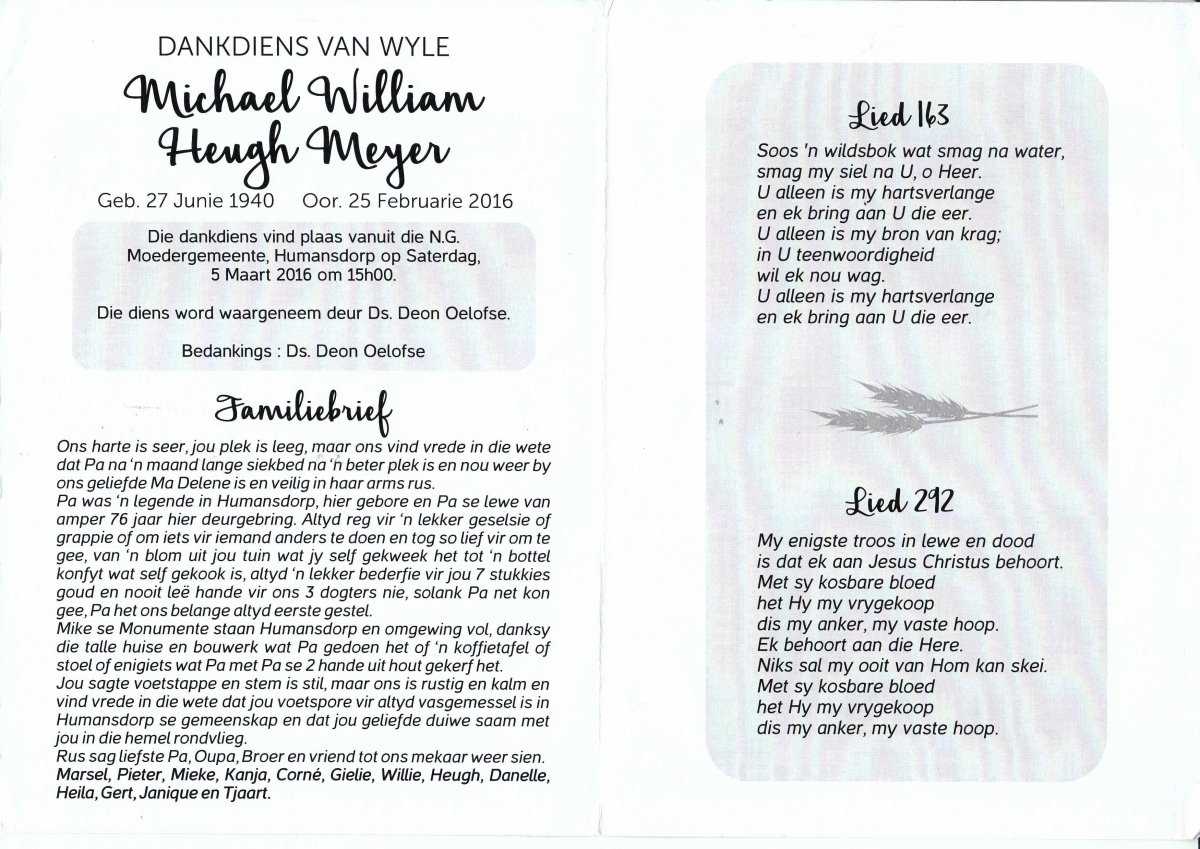 DANKDIENS VAN WYLE
Michael William
Heugh Meyer
Geb. 27 Junie 1940 Oor. 25 Februarie 2016
Die dankdiens vind plaas vanuit die N.G.
Moedergemeente, Humansdorp op Saterdag,
5 Maart 2016 om 15h00.
Die diens word waargeneem deur Ds. Deon Oelofse.
Bedankings : Ds. Deon Oelofse
Familiebrief
Ons harte is seer, jou plek is leeg, maar ons vind vrede in die wete
dat Pa na ‘n maand lange siekbed na ‘n beter plek is en nou weer by
ons geliefde Ma Delene is en veilig in haar arms rus.
Pa was ‘n legende in Humansdorp, hier gebore en Pa se lewe van
amper 76 jaar hier deurgebring. Altyd reg vir ‘n lekker geselsie of
grappie of om iets vir iemand anders te doen en tog so lief vir om te
gee, van ‘n blom uit jou tuin wat jy self gekweek het tot ‘n bottel
konfyt wat self gekook is, altyd ‘n lekker bederfie vir jou 7 stukkies
goud en nooit leë hande vir ons 3 dogters nie, solank Pa net kon
gee, Pa het ons belange altyd eerste gestel.
Mike se Monumente staan Humansdorp en omgewing vol, danksy
die talle huise en bouwerk wat Pa gedoen het of ‘n koffietafel of
stoel of enigiets wat Pa met Pa se 2 hande uit hout gekerf het.
Jou sagte voetstappe en stem is stil, maar ons is rustig en kalm en
vind vrede in die wete dat jou voetspore vir altyd vasgemessel is in
Humansdorp se gemeenskap en dat jou geliefde duiwe saam met
jou in die hemel rondvlieg.
Rus sag liefste Pa, Oupa, Broer en vriend tot ons mekaar weer sien.
Marsel, Pieter, Mieke, Kanja, Corné, Gielie, Willie, Heugh, Danelle,
Heila, Gert, Janique en Tjaart.
Lied 163
Soos 'n wildsbok wat smag na water,
smag my siel na U, o Heer.
U alleen is my hartsverlange
en ek bring aan U die eer.
U alleen is my bron van krag;
in U teenwoordigheid
wil ek nou wag.
U alleen is my hartsverlange
en ek bring aan U die eer.
Lied 292
My enigste troos in lewe en dood
is dat ek aan Jesus Christus behoort.
Met sy kosbare bloed
het Hy my vrygekoop
dis my anker, my vaste hoop.
Ek behoort aan die Here.
Niks sal my ooit van Hom kan skei.
Met sy kosbare bloed
het Hy my vrygekoop
dis my anker, my vaste hoop.